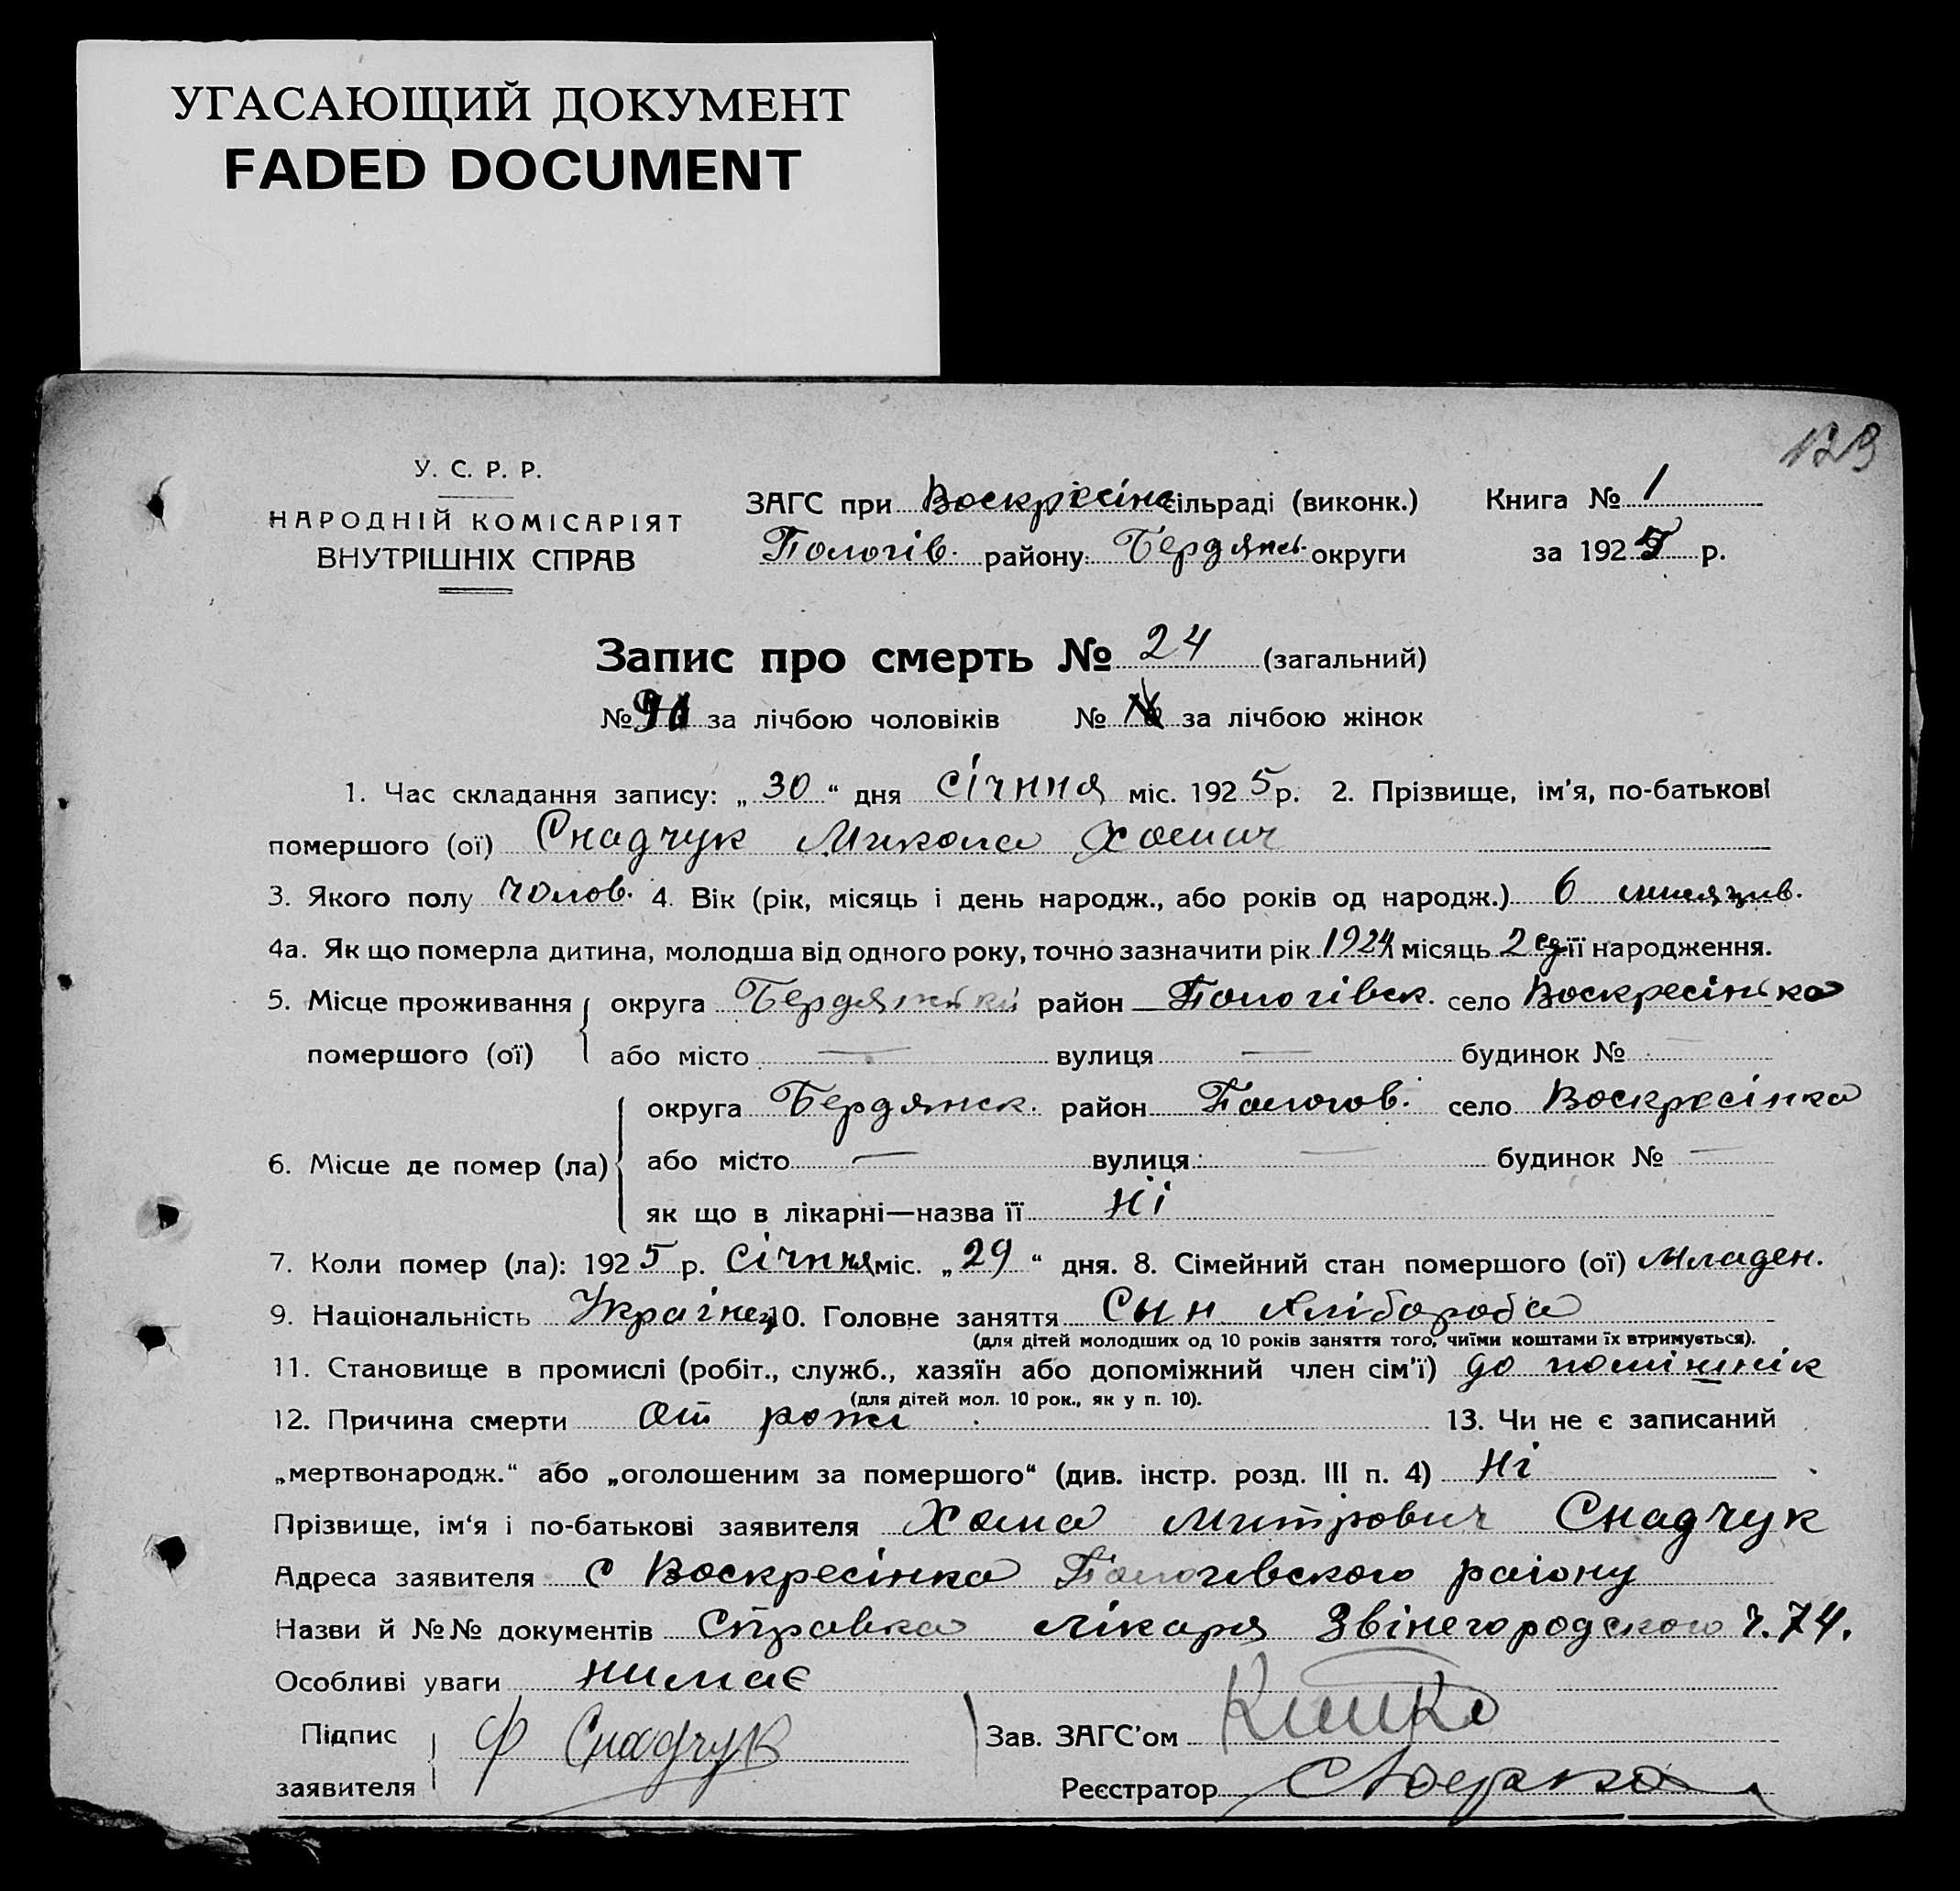 УГАСАЮЩИЙ ДОКУМЕНТ
FADED DOCUMENT
123
У. С. Р. Р.
НАРОДНІЙ КОМІСАРІЯТ
ВНУТРІШНІХ СПРАВ
ЗАГС при Воскресінс сільраді (виконк.) Книга № 1
Пологів. району Бердянсь. округи за 1925 р.
Запис про смерть № 24 (загальний)
№ за лічбою чоловіків № за лічбою жінок
1. Час складання запису: „30“ дня січння міс. 1925 р. 2. Прізвище, ім'я, по-батькові
помершого (ої) Снадчук Микола Хомич
3. Якого полу чолов. 4. Вік (рік, місяць і день народж., або років од народж.) 6
4а. Як що померла дитина, молодша від одного року, точно зазначити рік 1924 місяць 2 її народження.
5. Місце проживання округа район Пологівск. село Воскресінька
помершого (ої) або місто — вулиця — будинок № —
округа Бердянск. район Пологов. село Воскресінка
6. Місце де помер (ла) або місто — вулиця — будинок № —
як що в лікарні—назва її Ні
7. Коли помер (ла): 1925 р. січння міс. „29“ дня. 8. Сімейний стан помершого (ої) Младен.
9. Національність Українец 10. Головне заняття Сын Хлібороба
(для дітей молодших од 10 років заняття того, чиїми коштами їх втримується).
11. Становище в промислі (робіт., служб., хазяїн або допоміжний член сім'ї) до
(для дітей мол. 10 рок., як у п. 10).
12. Причина смерти от рожі 13. Чи не є записаний
„мертвонародж.“ або „оголошеним за помершого“ (див. інстр. розд. III п. 4) Ні
Прізвище, ім'я і по-батькові заявителя Хома Митрович Снадчук
Адреса заявителя с Воскресінка Пологівского району
Назви й №№ документів Справка лікаря Звінегородского ч. 74.
Особливі уваги нимає
Підпис
заявителя Ф Снадчук
Зав. ЗАГС'ом
Реєстратор